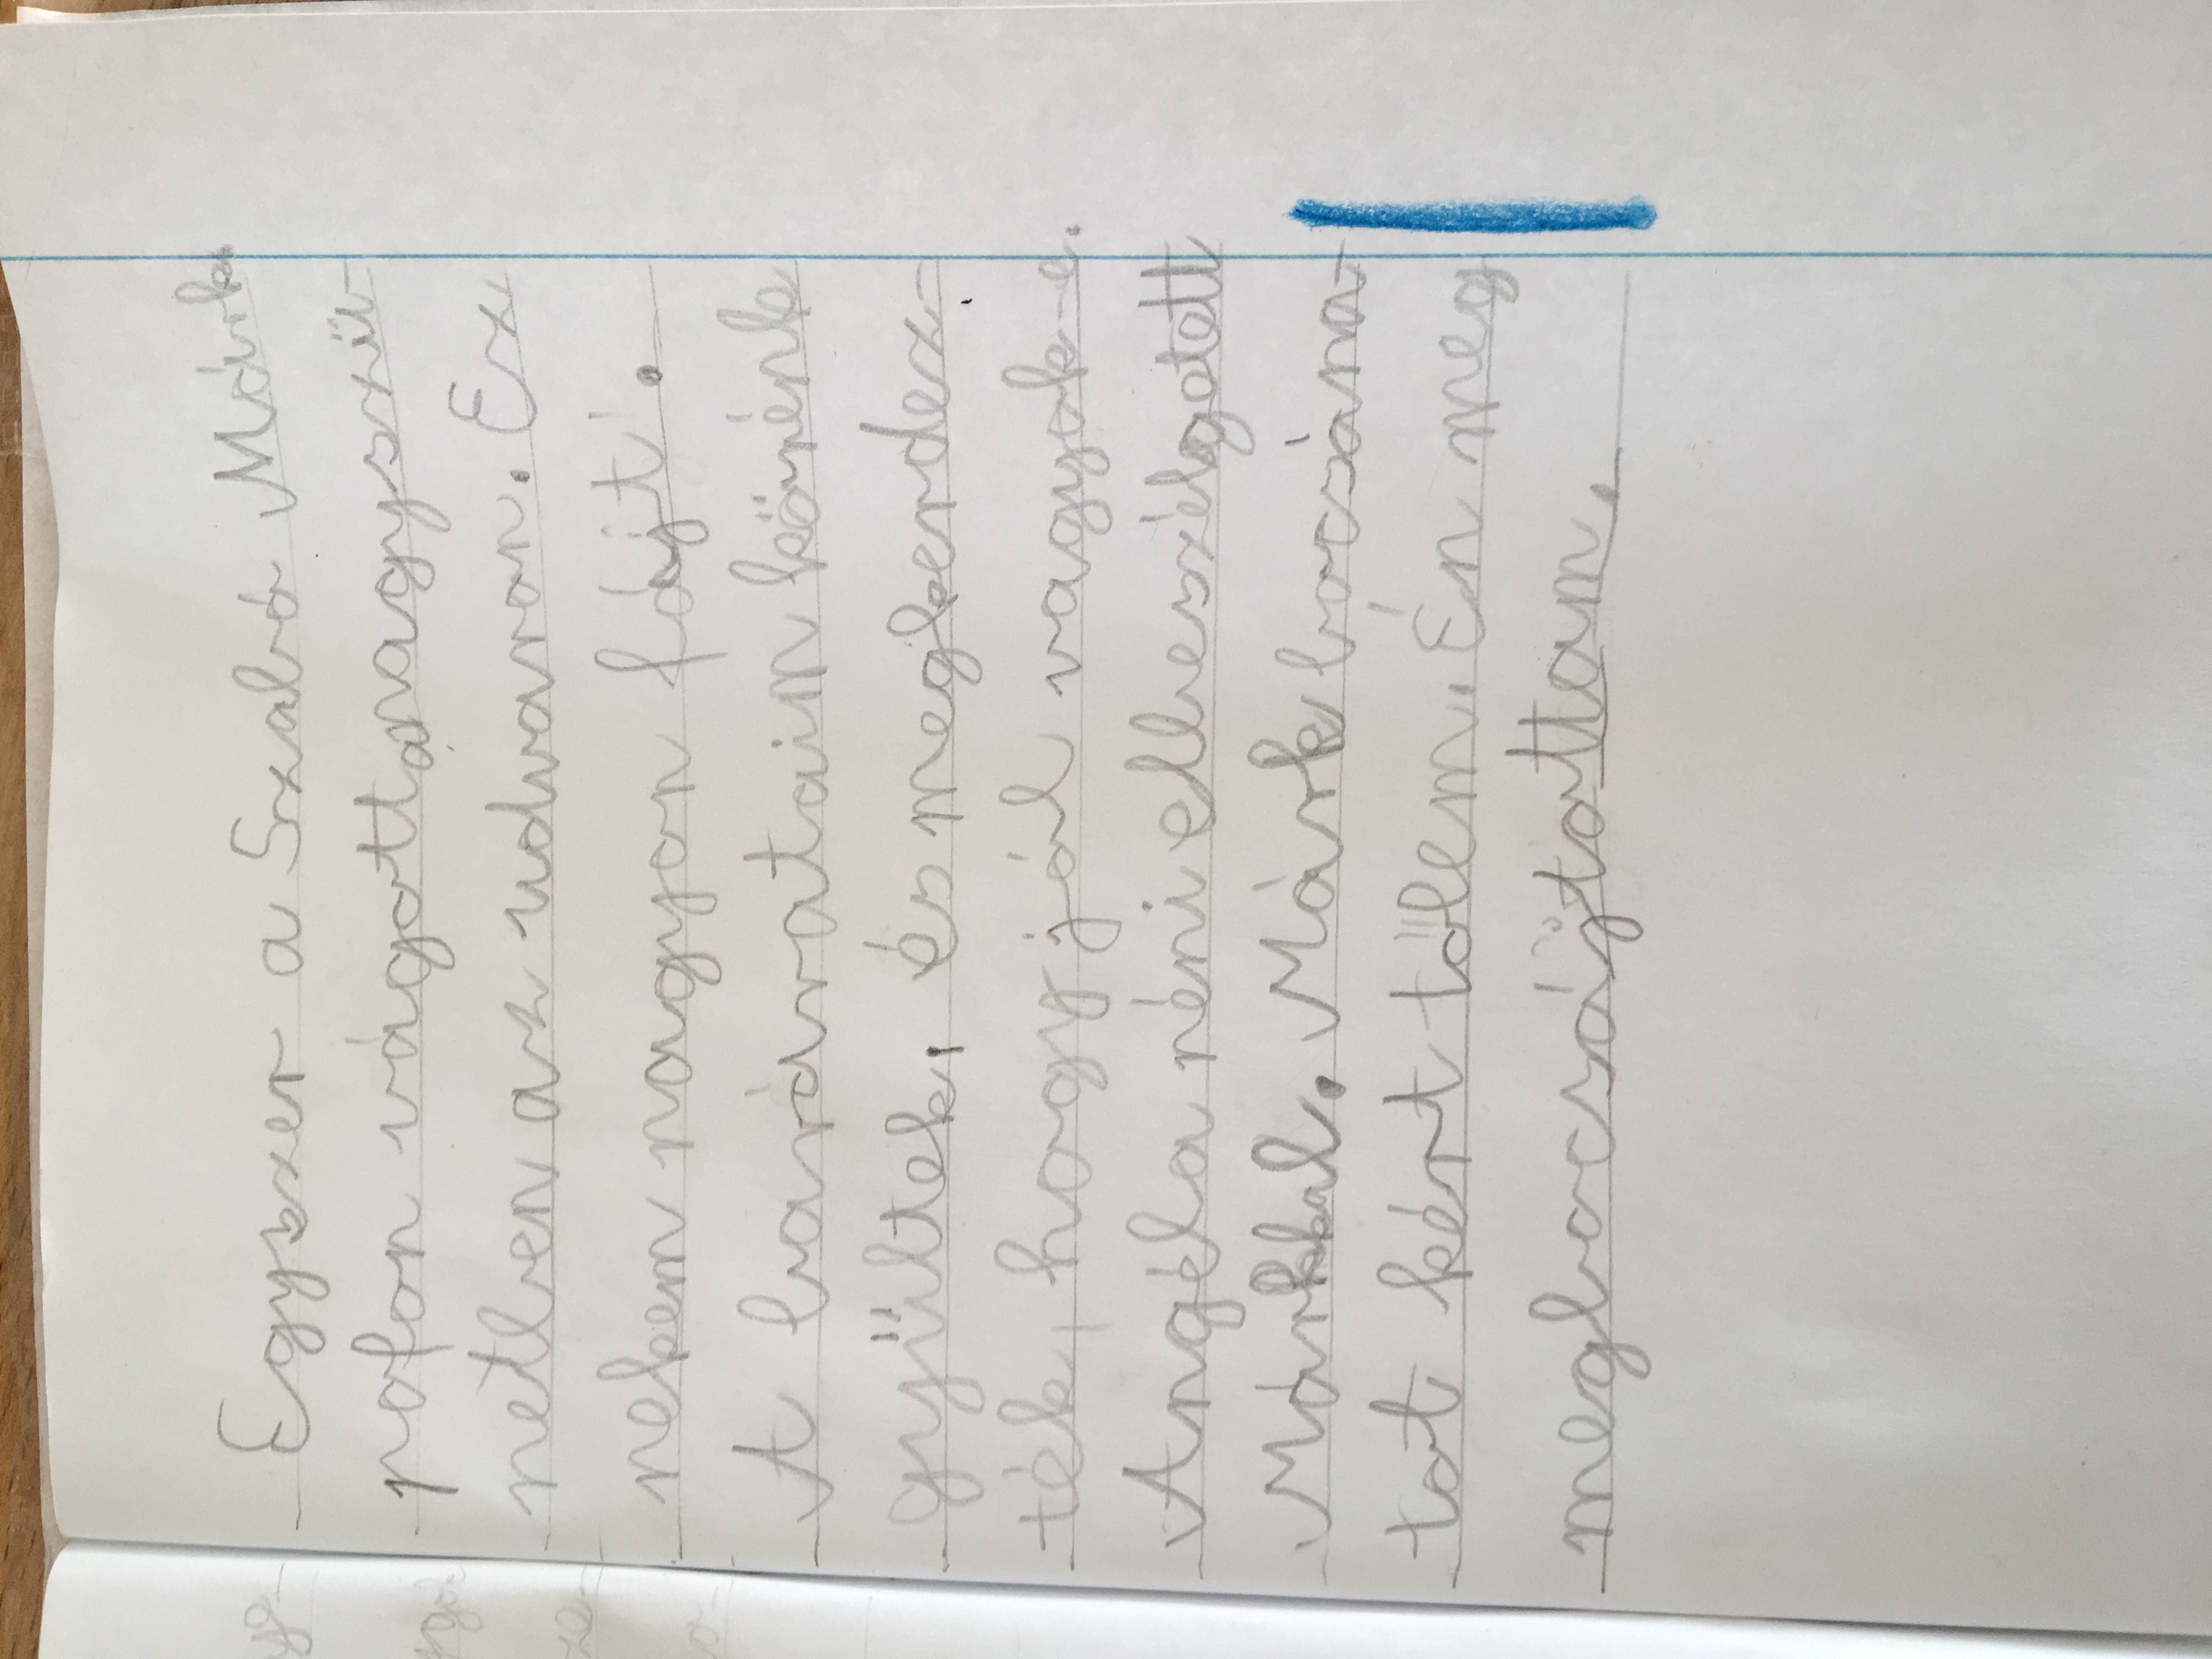 Egyszer a Szabó Márk
pofon vágott a nagyszü-
netben az udvaron. Ez
nekem nagyon fájt.
A barátaim körénk
gyűltek, és megkerdez-
ték, hogy jól vagyok-e.
Angéla néni elbeszélgetett
Márkkal. Márk bocsána-
tot kért tőlem. Én meg
megbocsájtottam.